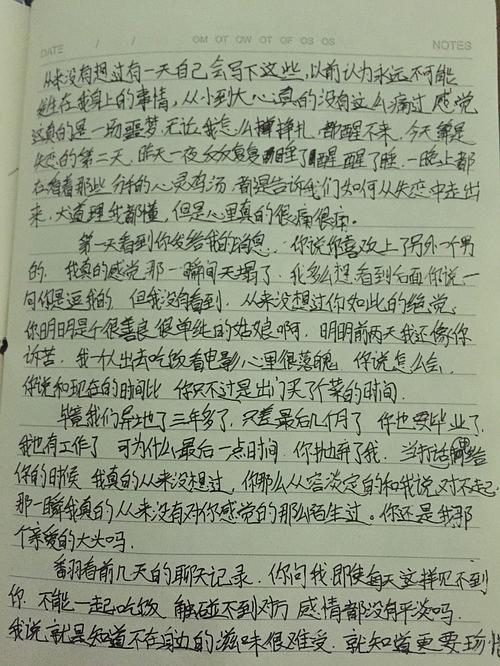 DATE / / OM OT OW OT OF OS OS NOTES
从来没有想过有一天自己会写下这些,以前认为永远不可能
发生在我身上的事情,从小到大心真的没有这么痛过 感觉
这真的是一场噩梦,无论我怎么挣扎,都醒不来,今天算是
失恋的第二天,昨天一夜反反复复睡了醒 醒了睡,一晚上都
在看着那些所谓的心灵鸡汤,都是告诉我们如何从失恋中走出
来,大道理我都懂,但是心里真的很痛很痛。
第一天看到你发给我的消息,你说你喜欢上了另外一个男
的,我真的感觉那一瞬间天塌了,我多么想看到后面你说一
句你是逗我的,但我没有看到,从来没想过你如此的绝觉,
你明明是个很善良很单纯的姑娘啊,明明前两天我还像你
诉苦,我一个人出去吃饭看电影心里很落魄,你说怎么会,
你说和现在的时间比 你只不过是出门买了个菜的时间.
毕竟我们异地了三年多了,只差最后几个月了 你也要毕业了,
我也有工作了 可为什么最后一点时间,你抛弃了我,当打电话给
你的时候,我真的从来没想过,你那么从容淡定的和我说对不起.
那一瞬我真的从来没有对你感觉的那么陌生过。你还是我那
个亲爱的大头吗.
翻看前几天的聊天记录,你问我即使每天这样见不到
你,不能一起吃饭,触碰不到对方 感情都没有平淡吗.
我说就是知道不在身边的滋味很难受,就知道更要珍惜